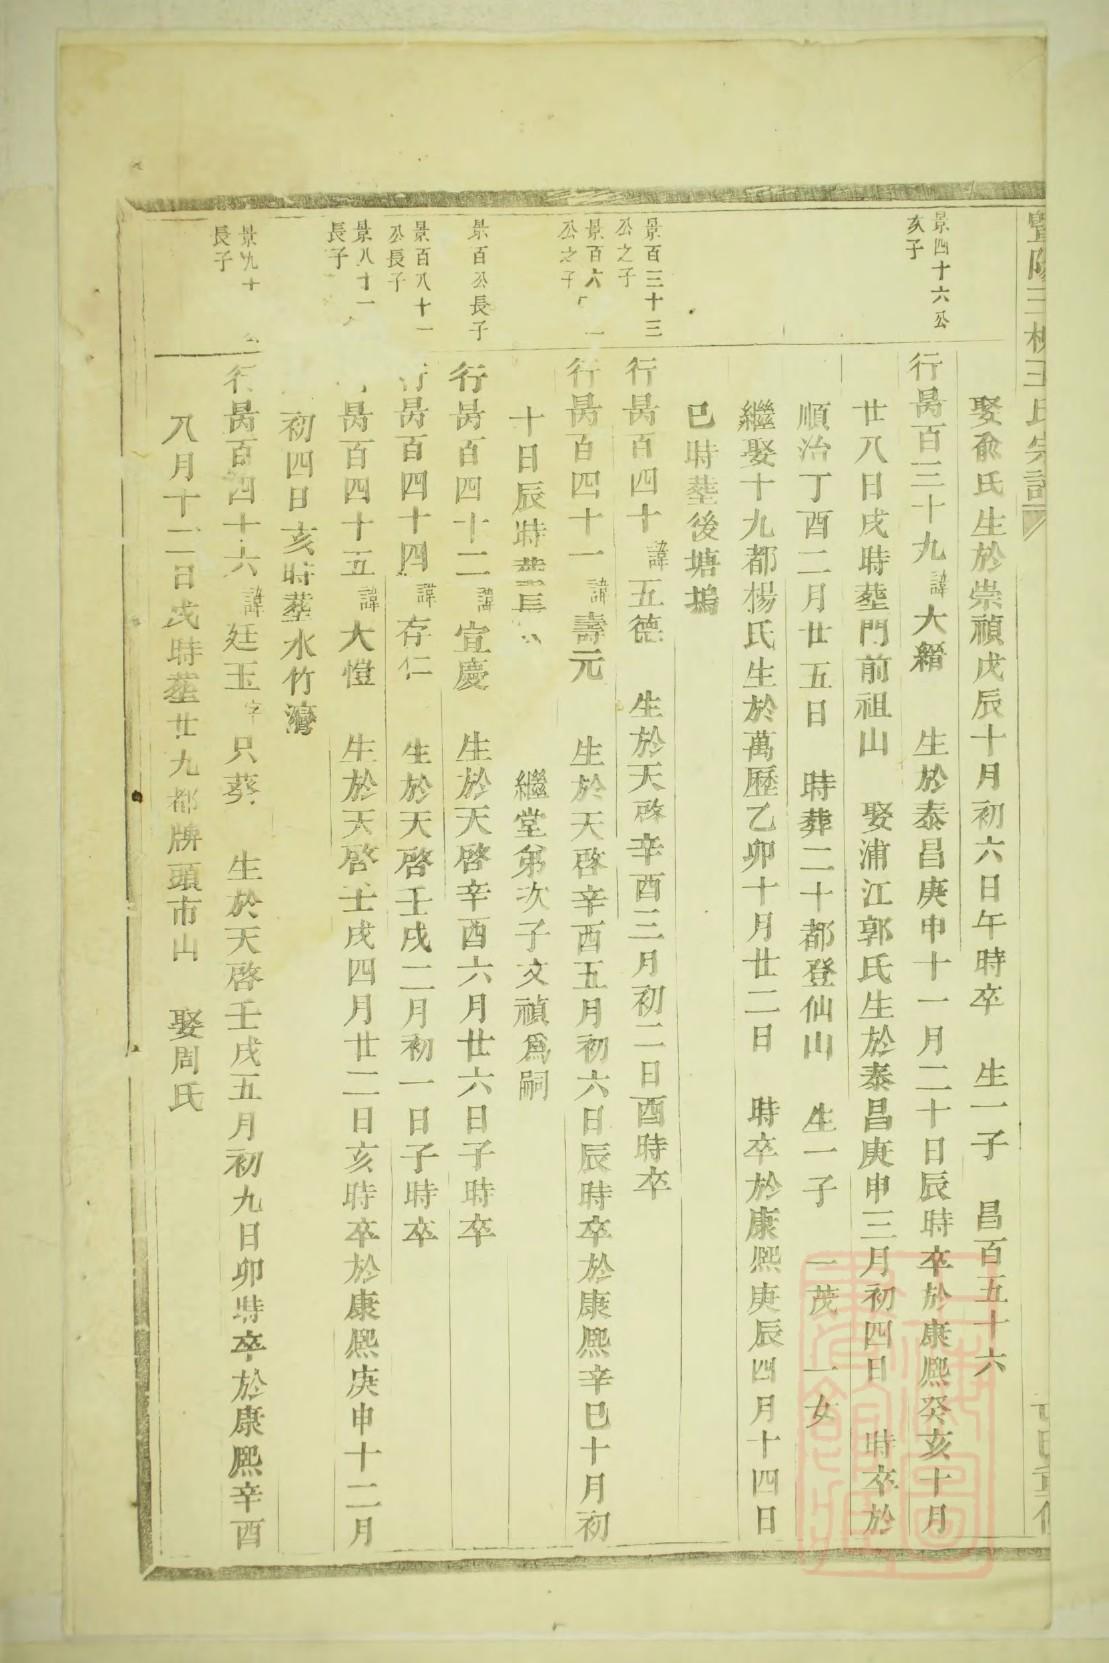 暨陽三橋王氏宗譜
娶俞氏生於崇禎戊辰十月初六日午時卒 生一子 昌百五十六
景四十六公
亥子
行昺百三十九諱大縉 生於泰昌庚申十一月二十日辰時卒於康熙癸亥十月
廿八日戌時塟門前祖山 娶浦江郭氏生於泰昌庚申三月初四日 時卒於
順治丁酉二月廿五日 時葬二十都登仙山 生一子 一茂 一女
繼娶十九都楊氏生於萬歷乙卯十月廿二日 時卒於康熙庚辰四月十四日
巳時塟後塘塢
景百三十三
公之子
行昺百四十諱五德 生於天啓辛酉三月初二日酉時卒
景百六
公之子
行昺百四十一諱壽元 生於天啓辛酉五月初六日辰時卒於康熙辛巳十月初
十日辰時塟 繼堂弟次子文禎爲嗣
景百公長子
行昺百四十二諱宜慶 生於天啓辛酉六月廿六日子時卒
景百八十一
公長子
行昺百四十四諱存仁 生於天啓壬戌二月初一日子時卒
景八十一
長子
昺百四十五諱大愷 生於天啓壬戌四月廿二日亥時卒於康熙庚申十二月
初四日亥時塟水竹灣
景九十
長子
行昺百四十六諱廷玉字只葵 生於天啓壬戌五月初九日卯時卒於康熙辛酉
八月十二日戌時塟廿九都牌頭市山 娶周氏